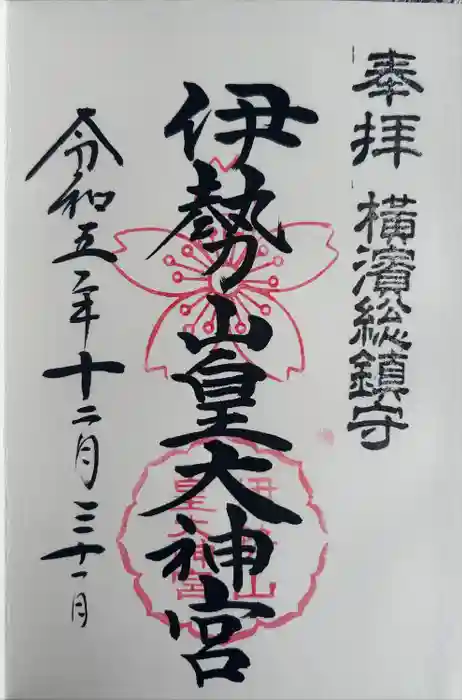 奉拝 横濱総鎮守
伊勢山皇大神宮
伊勢山
皇大神宮
令和五年十二月三十一日